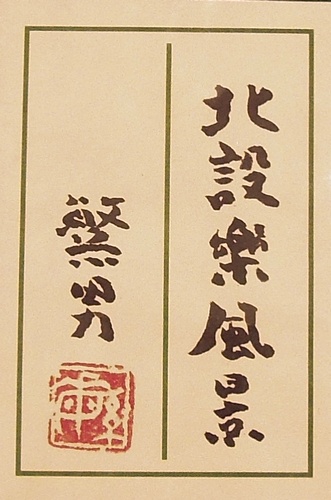 北設樂風景
繁男